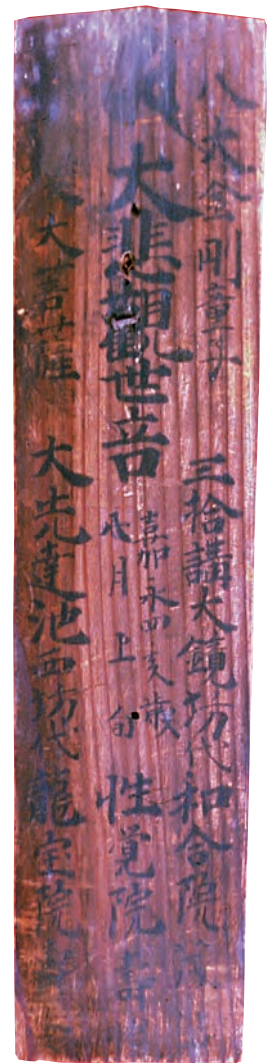 八大金剛童子
三拾講大鏡坊代和合院
大悲觀世音
嘉永四亥歳
八月上旬
性覚院
大菩薩
大先達池西坊代龍宝院